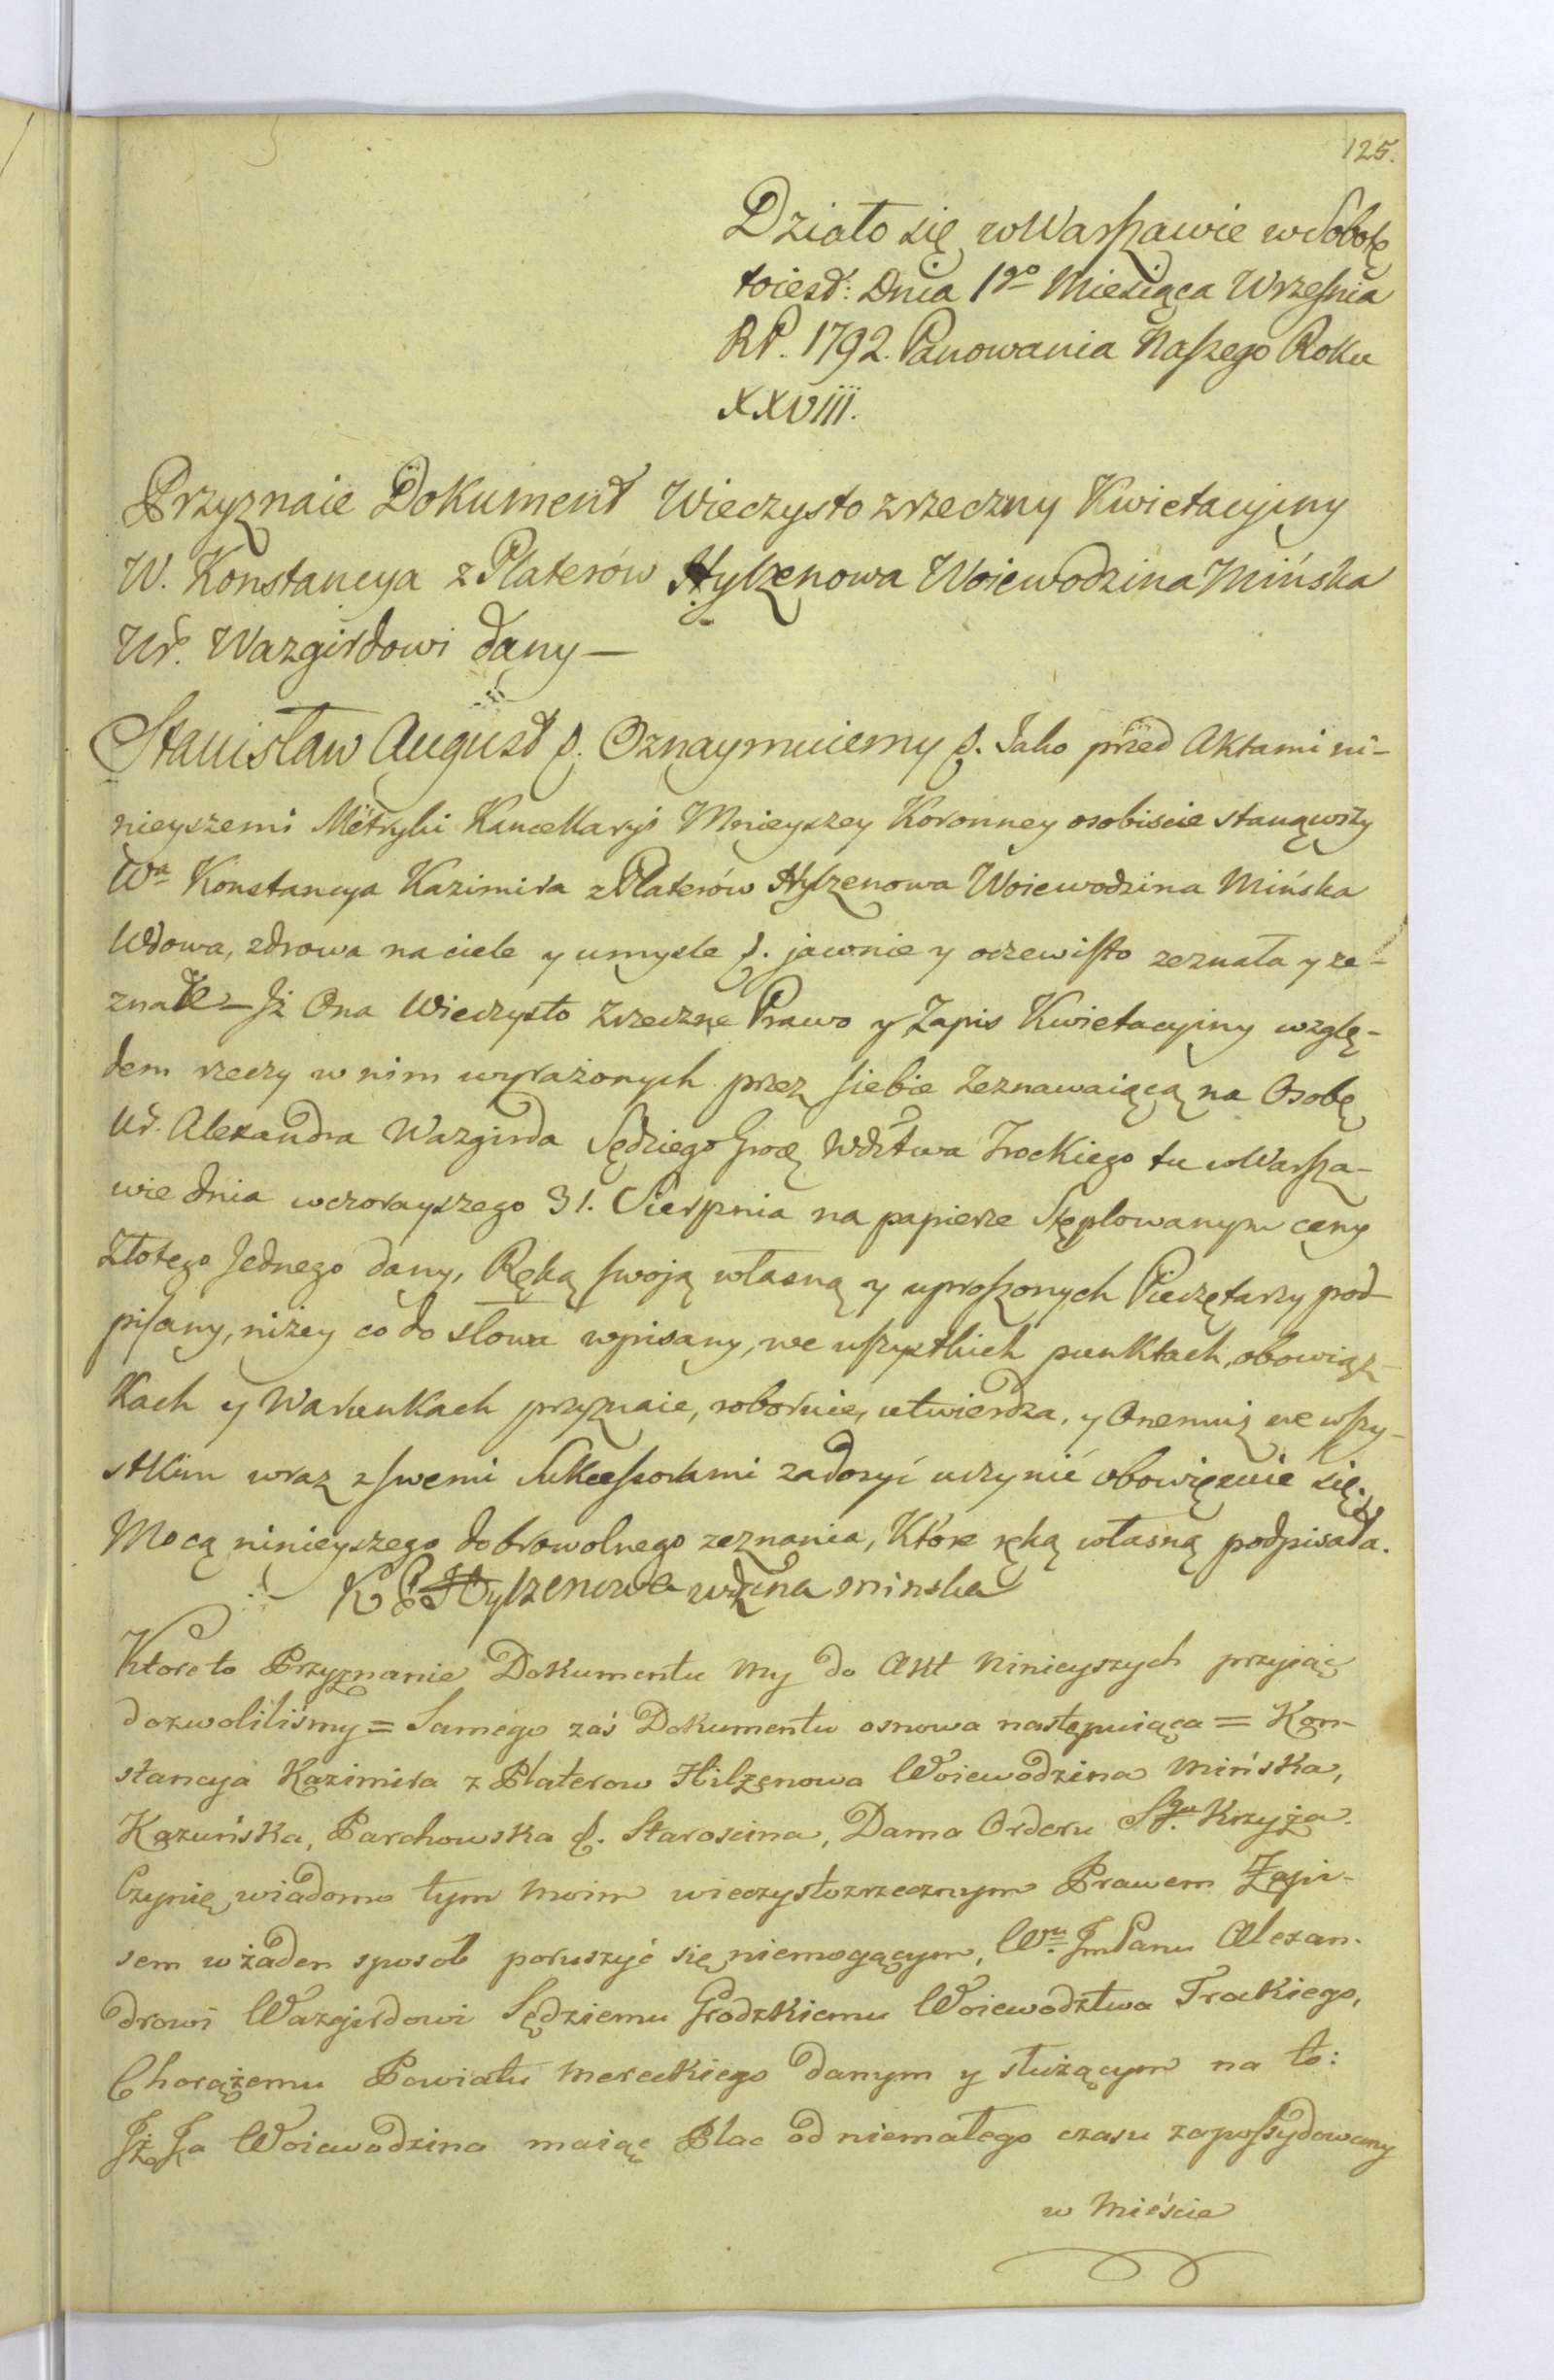 125.
Działo się w Warszawie w Sobotę
to iest: Dnia 1go Miesiąca Wrzesnia
RP. 1792. Panowania Naszego Roku
XXVIII.
Przyznaie Dokument Wieczysto zrzeczny Kwietacyiny
W. Konstancya z Platerów Hylzenowa Woiewodzina Mińska
Ur. Wazgirdowi dany —
Stanisław August &. Oznaymuiemy &. Jako przed Aktami ni-
nieyszemi Metryki Kancellaryi Mnieyszey Koronney osobiscie stanąwszy
Wa Konstancya Kazimira z Platerów Hylzenowa Woiewodzina Mińska
Wdowa, zdrowa na ciele y umysle &. jawnie y oczewisto zeznała y ze-
znaie — Jż Ona Wieczysto Zrzeczne Prawo y Zapis Kwietacyiny wzglę-
dem rzeczy w nim wyrażonych przez siebie Zeznawaiącą na Osobę
Ur. Alexandra Wazgirda Sędziego Grodz Wdztwa Trockiego tu w Warsza-
wie dnia wczorayszego 31. Sierpnia na papierze Stęplowanym ceny
Złotego Jednego dany, Ręką swoją własną y uproszonych Pieczętarzy pod-
pisany, niżey co do słowa wpisany, we wszystkich punktach, obowiąz-
kach y Warunkach przyznaie, roboruie, utwierdza, y Onemuż we wszy-
stkim wraz z swemi Sukcessorami zadosyć uczynić obowięzuie się.
Mocą ninieyszego dobrowolnego zeznania, Które ręką własną podpisała.
K P Hylzenowa wdzina minska
Ktore to Przyznanie Dokumentu My do Akt Ninieyszych przyiąć
dozwoliliśmy = Samego zaś Dokumentu osnowa następuiąca = Kon-
stancya Kazimira z Platerow Hilzenowa Woiewodzina Mińska,
Kazuńska, Parchowska &. Starościna, Dama Orderu Sgo Krzyża.
Czynię wiadomo tym moim wieczystozrzecznym Prawem Zapi-
sem w żaden sposob poruszyć się niemogącym, Wu JmPanu Alexan-
drowi Wazgirdowi Sędziemu Grodzkiemu Woiewodztwa Trockiego,
Chorążemu Powiatu Mereckiego danym y służącym na to:
Jż Ja Woiewodzina maiąc Plac od niemałego czasu zapossydowany
w Mieście